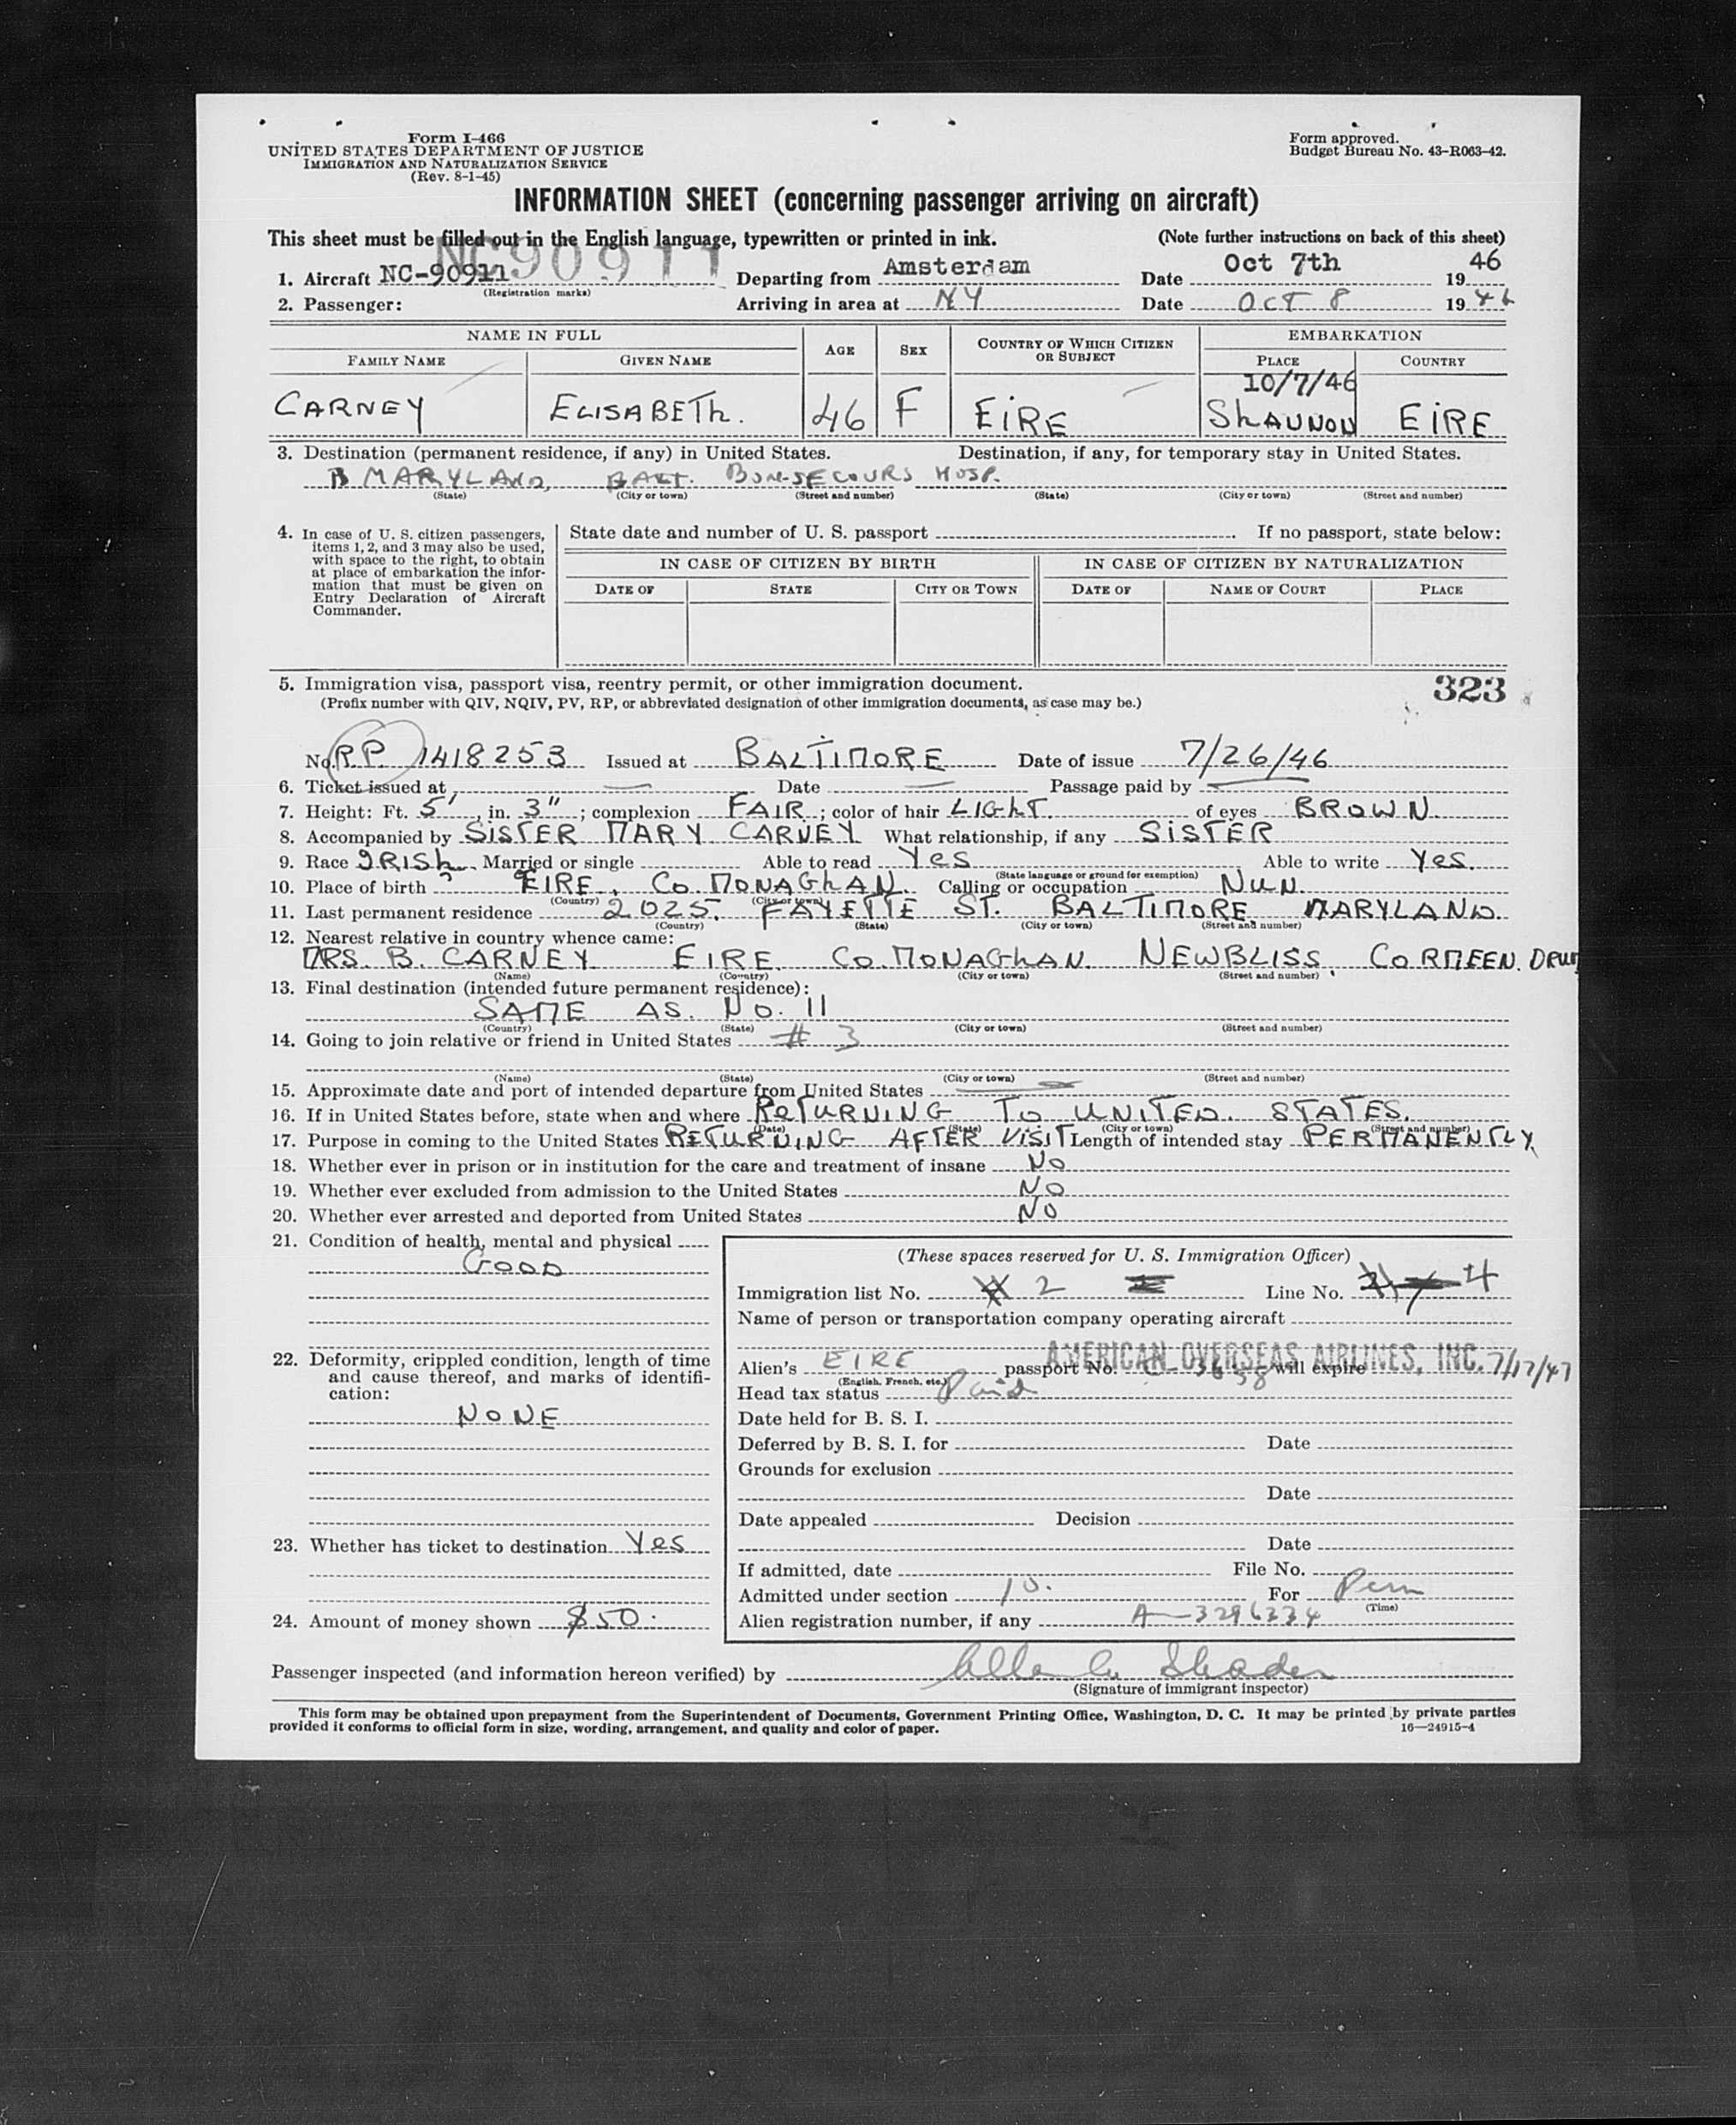 Form I-466
UNITED STATES DEPARTMENT OF JUSTICE
IMMIGRATION AND NATURALIZATION SERVICE
(Rev. 8-1-45)
Form approved.
Budget Bureau No. 43-R063-42.
INFORMATION SHEET (concerning passenger arriving on aircraft)
This sheet must be filled out in the English language, typewritten or printed in ink. (Note further instructions on back of this sheet)
NC90911
1. Aircraft NC-90911 Departing from Amsterdam Date Oct 7th 1946
(Registration marks)
2. Passenger: Arriving in area at NY Date OCT 8 1946
NAME IN FULL AGE SEX COUNTRY OF WHICH CITIZEN OR SUBJECT EMBARKATION
FAMILY NAME GIVEN NAME PLACE COUNTRY
10/7/46
CARNEY ELISABETH. 46 F EIRE SHANNON EIRE
3. Destination (permanent residence, if any) in United States. Destination, if any, for temporary stay in United States.
MARYLAND, BALT. BON-SECOURS HOSP.
(State) (City or town) (Street and number) (State) (City or town) (Street and number)
4. In case of U. S. citizen passengers, items 1, 2, and 3 may also be used, with space to the right, to obtain at place of embarkation the information that must be given on Entry Declaration of Aircraft Commander.
State date and number of U. S. passport If no passport, state below:
IN CASE OF CITIZEN BY BIRTH IN CASE OF CITIZEN BY NATURALIZATION
DATE OF STATE CITY OR TOWN DATE OF NAME OF COURT PLACE
5. Immigration visa, passport visa, reentry permit, or other immigration document. 323
(Prefix number with QIV, NQIV, PV, RP, or abbreviated designation of other immigration documents, as case may be.)
No. R.P. 1418253 Issued at BALTIMORE Date of issue 7/26/46
6. Ticket issued at — Date — Passage paid by —
7. Height: Ft. 5', in. 3"; complexion FAIR; color of hair LIGHT. of eyes BROWN.
8. Accompanied by SISTER MARY CARNEY What relationship, if any SISTER
9. Race IRISH Married or single Able to read Yes Able to write Yes.
(State language or ground for exemption)
10. Place of birth EIRE, CO. MONAGHAN. Calling or occupation NUN.
(Country) (City or town)
11. Last permanent residence 2025. FAYETTE ST. BALTIMORE MARYLAND.
(Country) (State) (City or town) (Street and number)
12. Nearest relative in country whence came:
MRS. B. CARNEY EIRE CO. MONAGHAN. NEWBLISS, CORMEEN. DRUM
(Name) (Country) (City or town) (Street and number)
13. Final destination (intended future permanent residence):
SAME AS. No. 11
(Country) (State) (City or town) (Street and number)
14. Going to join relative or friend in United States # 3
(Name) (State) (City or town) (Street and number)
15. Approximate date and port of intended departure from United States —
16. If in United States before, state when and where RETURNING TO UNITED. STATES.
(Date) (State) (City or town) (Street and number)
17. Purpose in coming to the United States RETURNING AFTER VISIT Length of intended stay PERMANENTLY
18. Whether ever in prison or in institution for the care and treatment of insane NO
19. Whether ever excluded from admission to the United States NO
20. Whether ever arrested and deported from United States NO
21. Condition of health, mental and physical
GOOD
22. Deformity, crippled condition, length of time and cause thereof, and marks of identification:
NONE
23. Whether has ticket to destination Yes
24. Amount of money shown $50.
(These spaces reserved for U. S. Immigration Officer)
Immigration list No. 2 Line No. 4
Name of person or transportation company operating aircraft
AMERICAN OVERSEAS AIRLINES, INC.
Alien's EIRE passport No. will expire 7/17/47
(English, French, etc.)
Head tax status Paid
Date held for B. S. I.
Deferred by B. S. I. for Date
Grounds for exclusion
Date
Date appealed Decision
Date
If admitted, date File No.
Admitted under section 10. For Perm
(Time)
Alien registration number, if any A-3296334
Passenger inspected (and information hereon verified) by
(Signature of immigrant inspector)
This form may be obtained upon prepayment from the Superintendent of Documents, Government Printing Office, Washington, D. C. It may be printed by private parties
provided it conforms to official form in size, wording, arrangement, and quality and color of paper. 16—24915-4